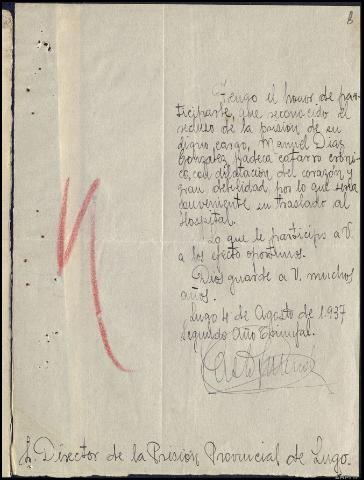 8
Tengo el honor de par-
ticiparle, que reconocido el
recluso de la prisión de su
digno cargo, Manuel Diaz
Gonzalez padece catarro cróni-
co, con dilatación del corazón y
gran debilidad, por lo que seria
conveniente su traslado al
Hospital.
Lo que le participo a V.
a los efecto oportunos.
Dios guarde a V. muchos
años.
Lugo 4 de Agosto de 1937
Segundo Año Triunfal.
Director de la Prisión Provincial de Lugo.